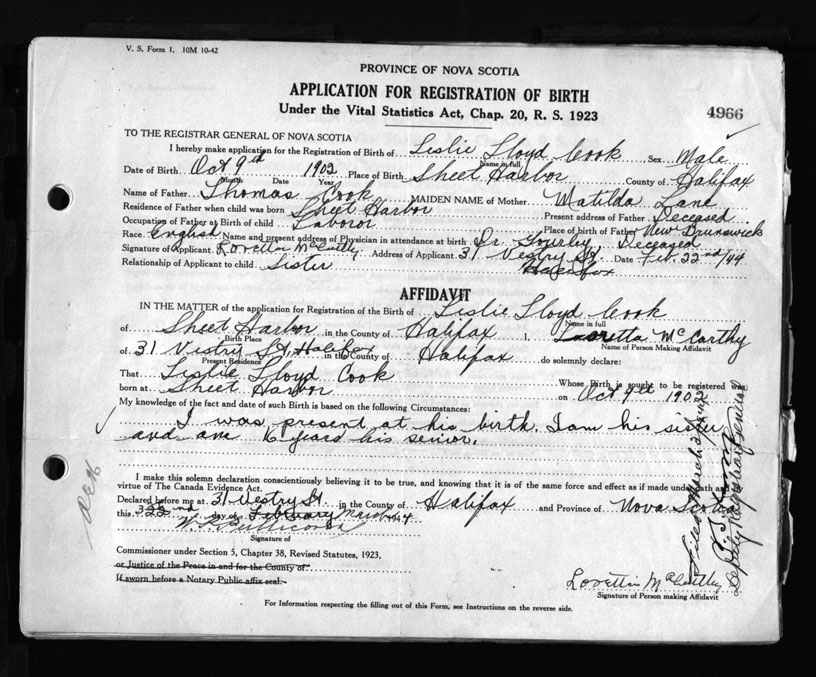 V. S. Form 1. 10M 10-42
PROVINCE OF NOVA SCOTIA
APPLICATION FOR REGISTRATION OF BIRTH
Under the Vital Statistics Act, Chap. 20, R. S. 1923
4966
TO THE REGISTRAR GENERAL OF NOVA SCOTIA
I hereby make application for the Registration of Birth of Leslie Lloyd Cook Sex Male
Name in full
Date of Birth Oct 9th 1902 Place of Birth Sheet Harbor County of Halifax
Month Date Year
Name of Father Thomas Cook MAIDEN NAME of Mother Matilda Lane
Residence of Father when child was born Sheet Harbor Present address of Father Deceased
Occupation of Father at Birth of child Laboror Place of birth of Father New Brunswick
Race English Name and present address of Physician in attendance at birth Dr. Deceased
Signature of Applicant Loretta McCarthy Address of Applicant 31 Vestry St Date Feb 22nd/44
Halifax
Relationship of Applicant to child Sister
AFFIDAVIT
IN THE MATTER of the application for Registration of the Birth of Leslie Lloyd Cook
Name in full
of Sheet Harbor in the County of Halifax I, Loretta McCarthy
Birth Place Name of Person Making Affidavit
of 31 Vestry St, Halifax in the County of Halifax do solemnly declare:
Present Residence
That Leslie Lloyd Cook Whose Birth is sought to be registered was
born at Sheet Harbor on Oct 9th 1902
My knowledge of the fact and date of such Birth is based on the following Circumstances:
I was present at his birth. I am his sister
and am 16 years his senior.
I make this solemn declaration conscientiously believing it to be true, and knowing that it is of the same force and effect as if made under oath and by
virtue of The Canada Evidence Act.
Declared before me at 31 Vestry St in the County of Halifax and Province of Nova Scotia
this 22nd day of February March 1944
Signature of
Commissioner under Section 5, Chapter 38, Revised Statutes, 1923,
or Justice of the Peace in and for the County of
If sworn before a Notary Public affix seal.
Loretta McCarthy
Signature of Person making Affidavit
For Information respecting the filling out of this Form, see Instructions on the reverse side.
Filed March
Deputy Registrar General